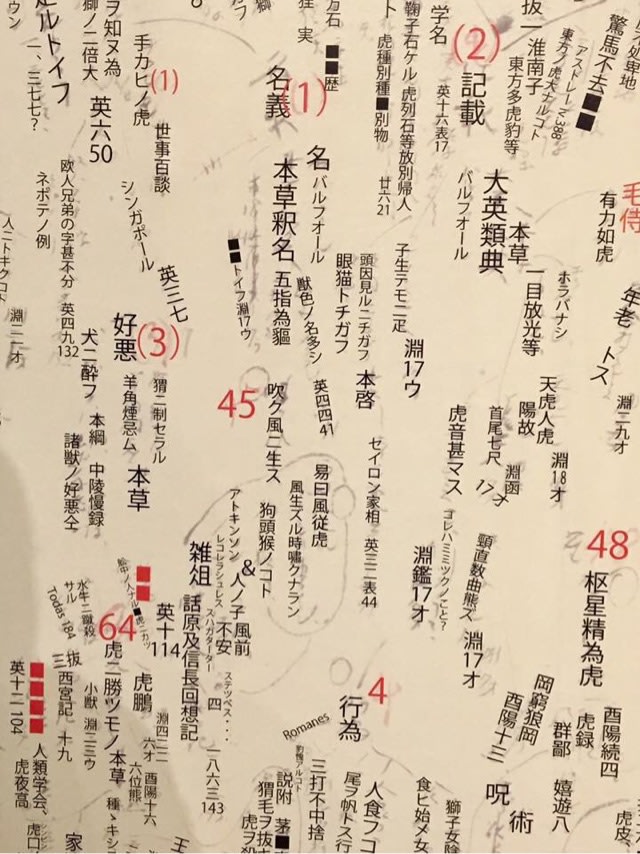 驚馬不去■■
アストレー V.388
東方ノ虎大ナルコト
抜一 淮南子
東方多虎豹等
(2)
記載
英十六表17
学名
鞠子石ケル 虎列石等放別帰人
虎種別種■別物
廿六21
■■歴
(1)
名義
(1)
手カヒノ虎
世事百談
英六50
ヲ知ヌ為
獅ノ二倍大
一、三七七?
毛侍
有力如虎
年老トス
淵二九オ
ホラバナシ
本草
一目放光等
大英類典
バルフオール
子生テモニ疋
淵17ウ
名
バルフオール
獣色ノ名多シ
英四四41
本草釈名
五指為貙
■■トイフ淵17ウ
頭因見ルニチガフ
眼猫トチガフ
本啓
シンガポール
英三七
欧人兄弟の字甚不分
英四九132
ネポテノ例
人ニトキクコト
淵二一オ
(3)
好悪
猬ニ制セラル
羊角煙忌ム
本草
犬ニ酔フ
本綱
中陵慢録
諸獣ノ好悪仝
45
吹ク風ニ生ス
易曰風従虎
風生ズル時嘯クナラン
狗頭猴ノコト
セイロン家相
英三二表44
天虎人虎
淵18オ
陽故
淵函
首尾七尺
17オ
虎音甚マス
ゴレハミミヅクノこと?
淵鑑17オ
頸直数曲熊ズ
淵17オ
48
枢星精為虎
酉陽続四
虎録
群鄙
嬉遊八
岡窮狼岡
酉陽十三
呪術
4
行為
Romanes
人食フコ
尾ヲ帆トス行
三打不中捨
説附
茅■
猬毛ヲ抜
虎ヲ殺
食ヒ始メ女
獅子女陰
虎皮、
アトキンソン
レコレラシュレス
&
人ノ子風前
不安
スハガターター
ステツベス・・・
雑俎
話原及信長回想記
四
一八六三143
■■
絵中ノ人トナル■虎ニカツ
英十114
64
虎ニ勝ツモノ
本草
虎鵬
淵四二二
六オ
酉陽十六
六位熊
水牛ニ蹴殺
サル
Todas 184
三抜
西宮記
十九
小獣
淵三三ウ
■■■■
英十二104
人類学会、
虎夜高
虎口
家
王